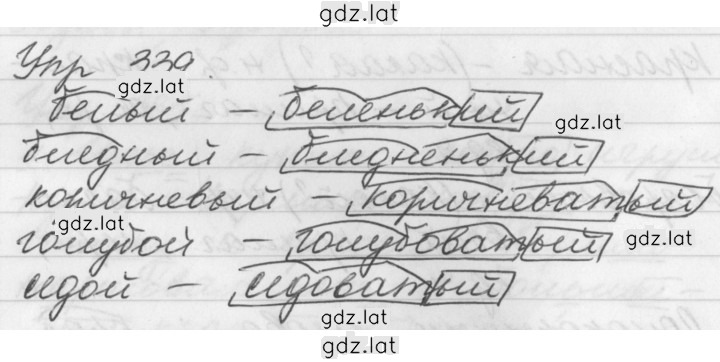 gdz.lat
Упр 229.
gdz.lat
белый – беленький
gdz.lat
бледный – бледненький
коричневый – коричневатый
gdz.lat
голубой – голубоватый
gdz.lat
седой – седоватый
gdz.lat
gdz.lat